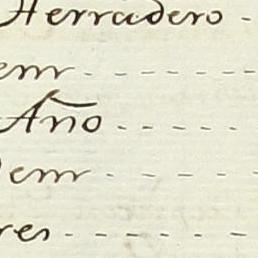 Herradero -
em - - - - - -
Año - - - - -
Dem - - - - -
res - - - - -